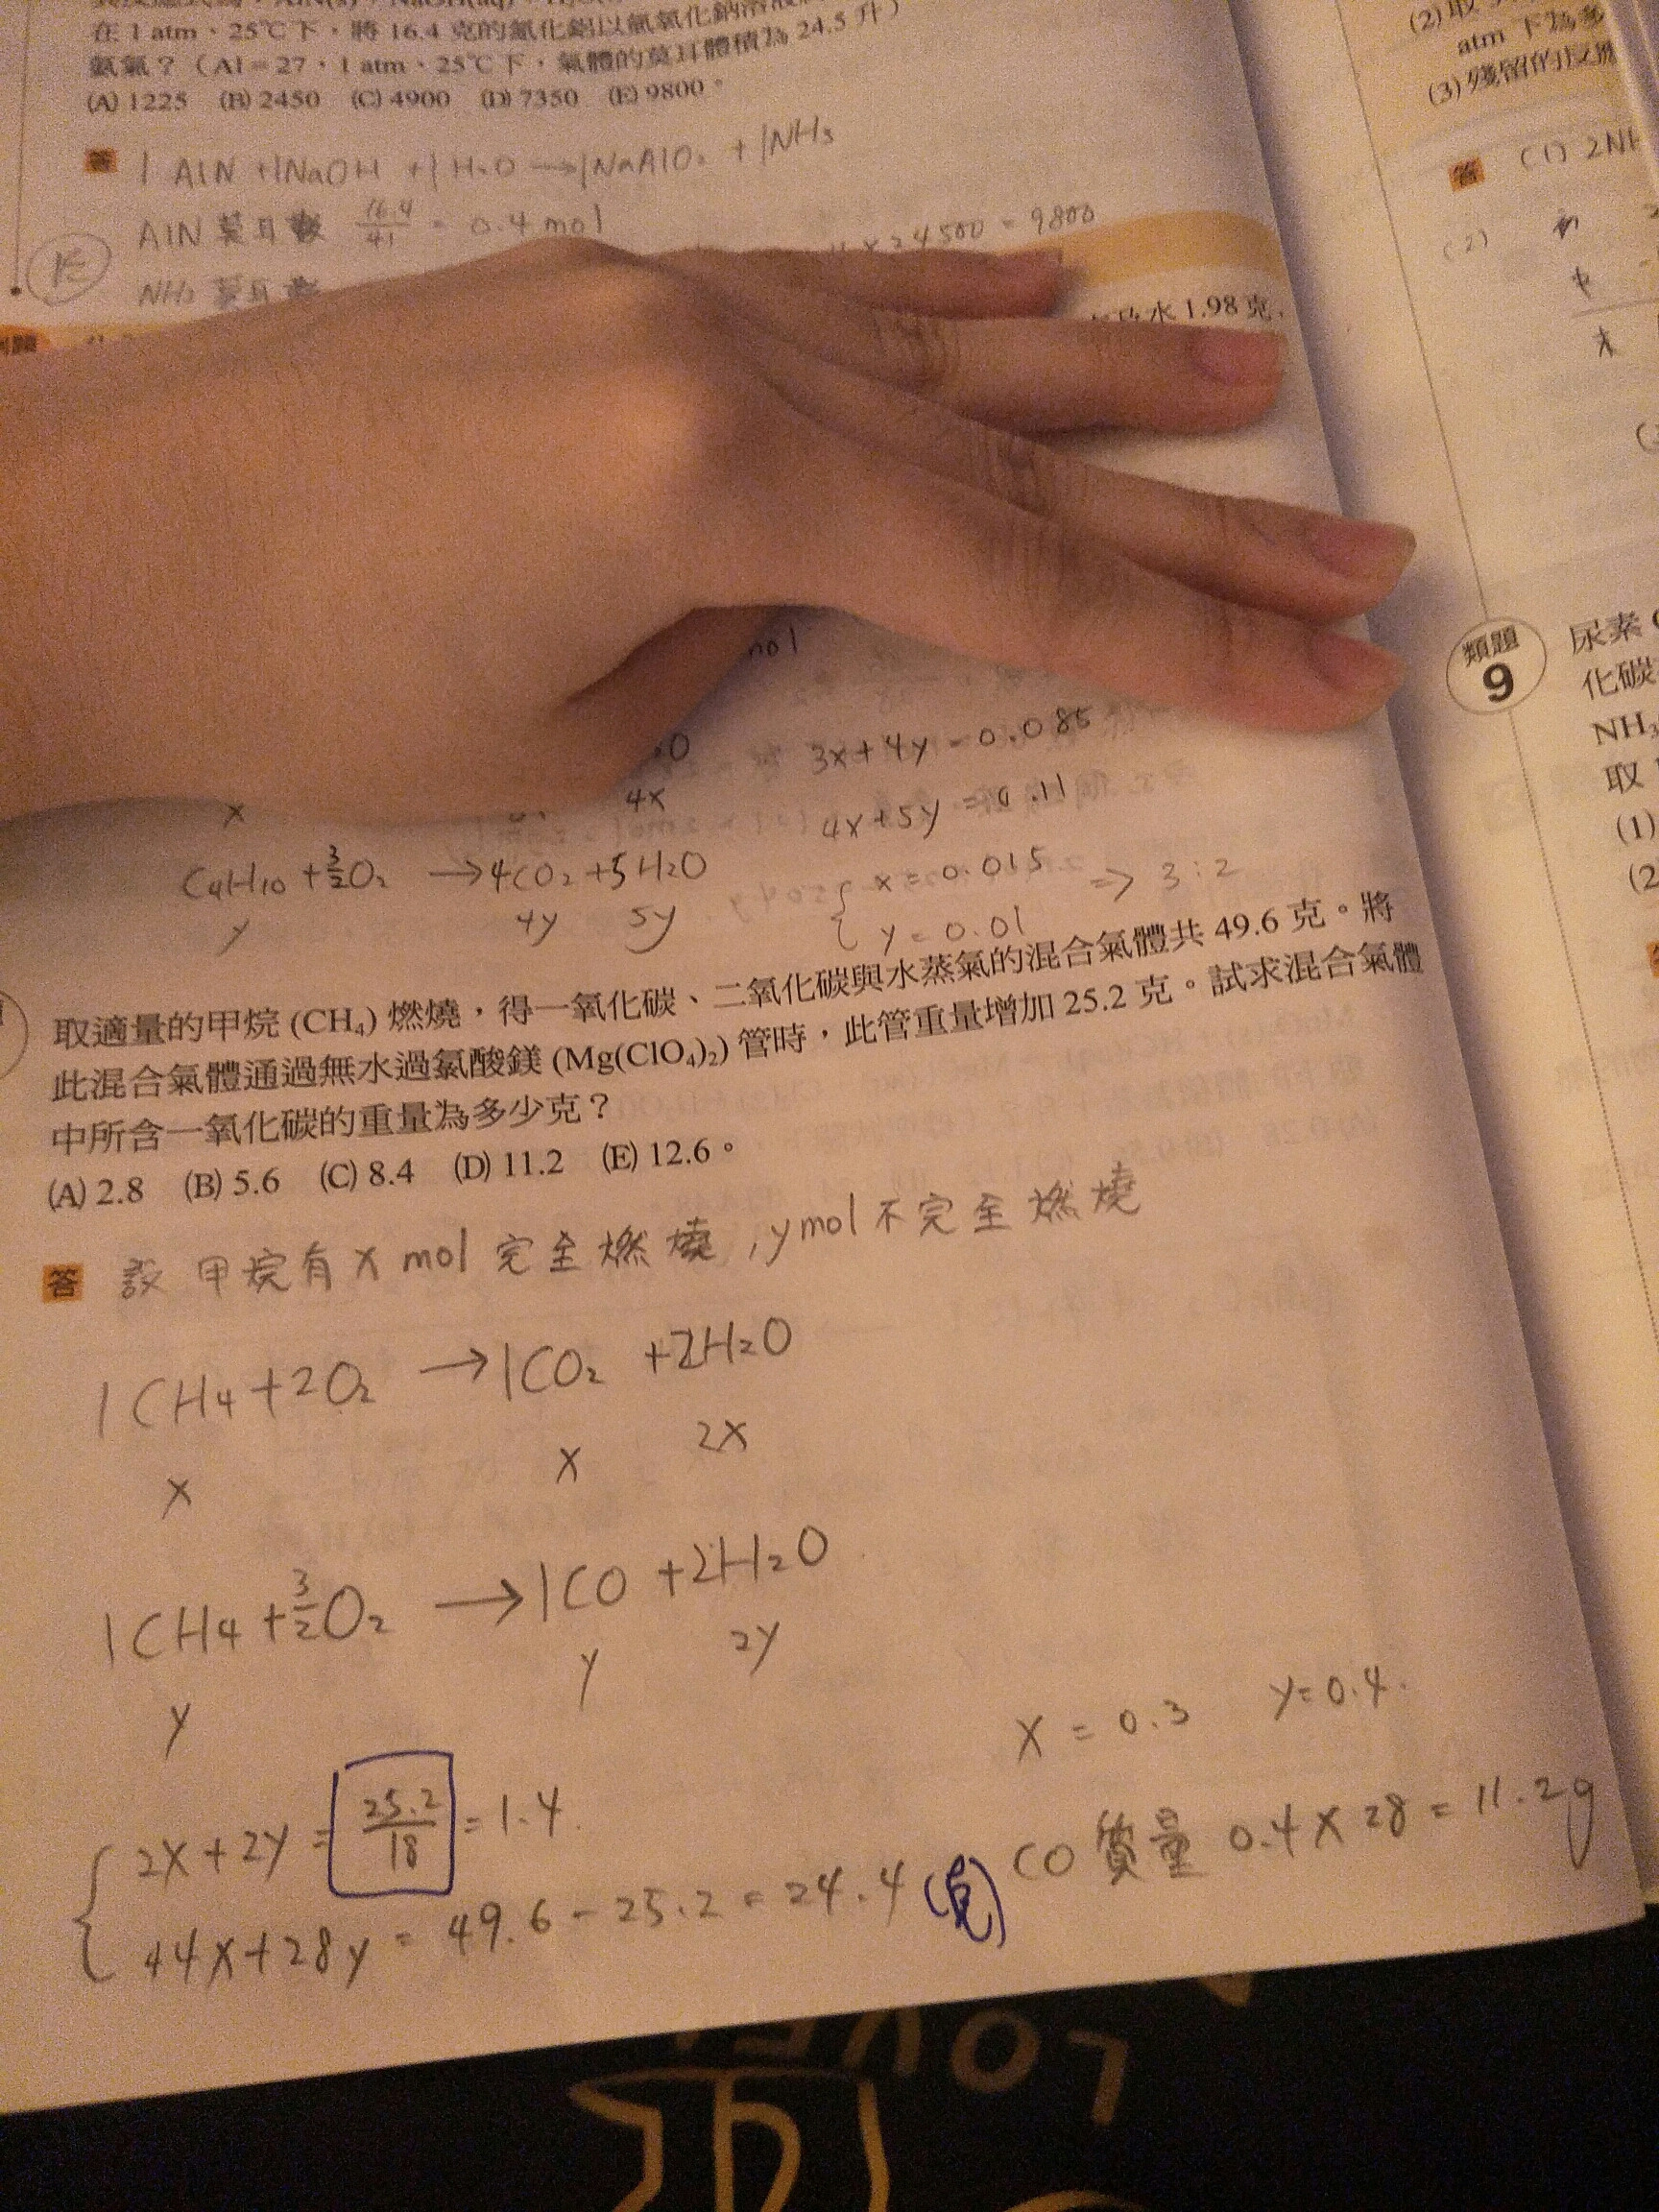 在 1 atm、25℃下,將 16.4 克的氮化鋁以氫氧化鈉溶液
氨氣?(Al=27,1 atm、25℃下,氣體的莫耳體積為 24.5 升)
(A) 1225 (B) 2450 (C) 4900 (D) 7350 (E) 9800。
答 1 AlN +1NaOH +1H₂O →1NaAlO₂ +1NH₃
AlN 莫耳數 16.4/41 = 0.4 mol
(E)
NH₃ 莫耳數
x 24500 = 9800
水 1.98 克,
3x+4y=0.085
4x
x
4x+5y=0.11
C₄H₁₀ + 3/2 O₂ →4CO₂+5H₂O
y 4y 5y
{ x=0.015
y=0.01
=> 3:2
取適量的甲烷 (CH₄) 燃燒,得一氧化碳、二氧化碳與水蒸氣的混合氣體共 49.6 克。將
此混合氣體通過無水過氯酸鎂 (Mg(ClO₄)₂) 管時,此管重量增加 25.2 克。試求混合氣體
中所含一氧化碳的重量為多少克?
(A) 2.8 (B) 5.6 (C) 8.4 (D) 11.2 (E) 12.6。
答 設 甲烷有 x mol 完全燃燒,y mol 不完全燃燒
1CH₄+2O₂ →1CO₂ +2H₂O
x x 2x
1CH₄+ 3/2 O₂ →1CO +2H₂O
y y 2y
x = 0.3 y=0.4.
{ 2x+2y = 25.2/18 =1.4.
44x+28y = 49.6-25.2 = 24.4 (克)
CO 質量 0.4x28 = 11.2g
(2)取
atm 下為多
(3)殘留的
答 (1) 2NH
(2)
類題
9
尿素
化碳
NH₃
取
(1)
(2
LOVE